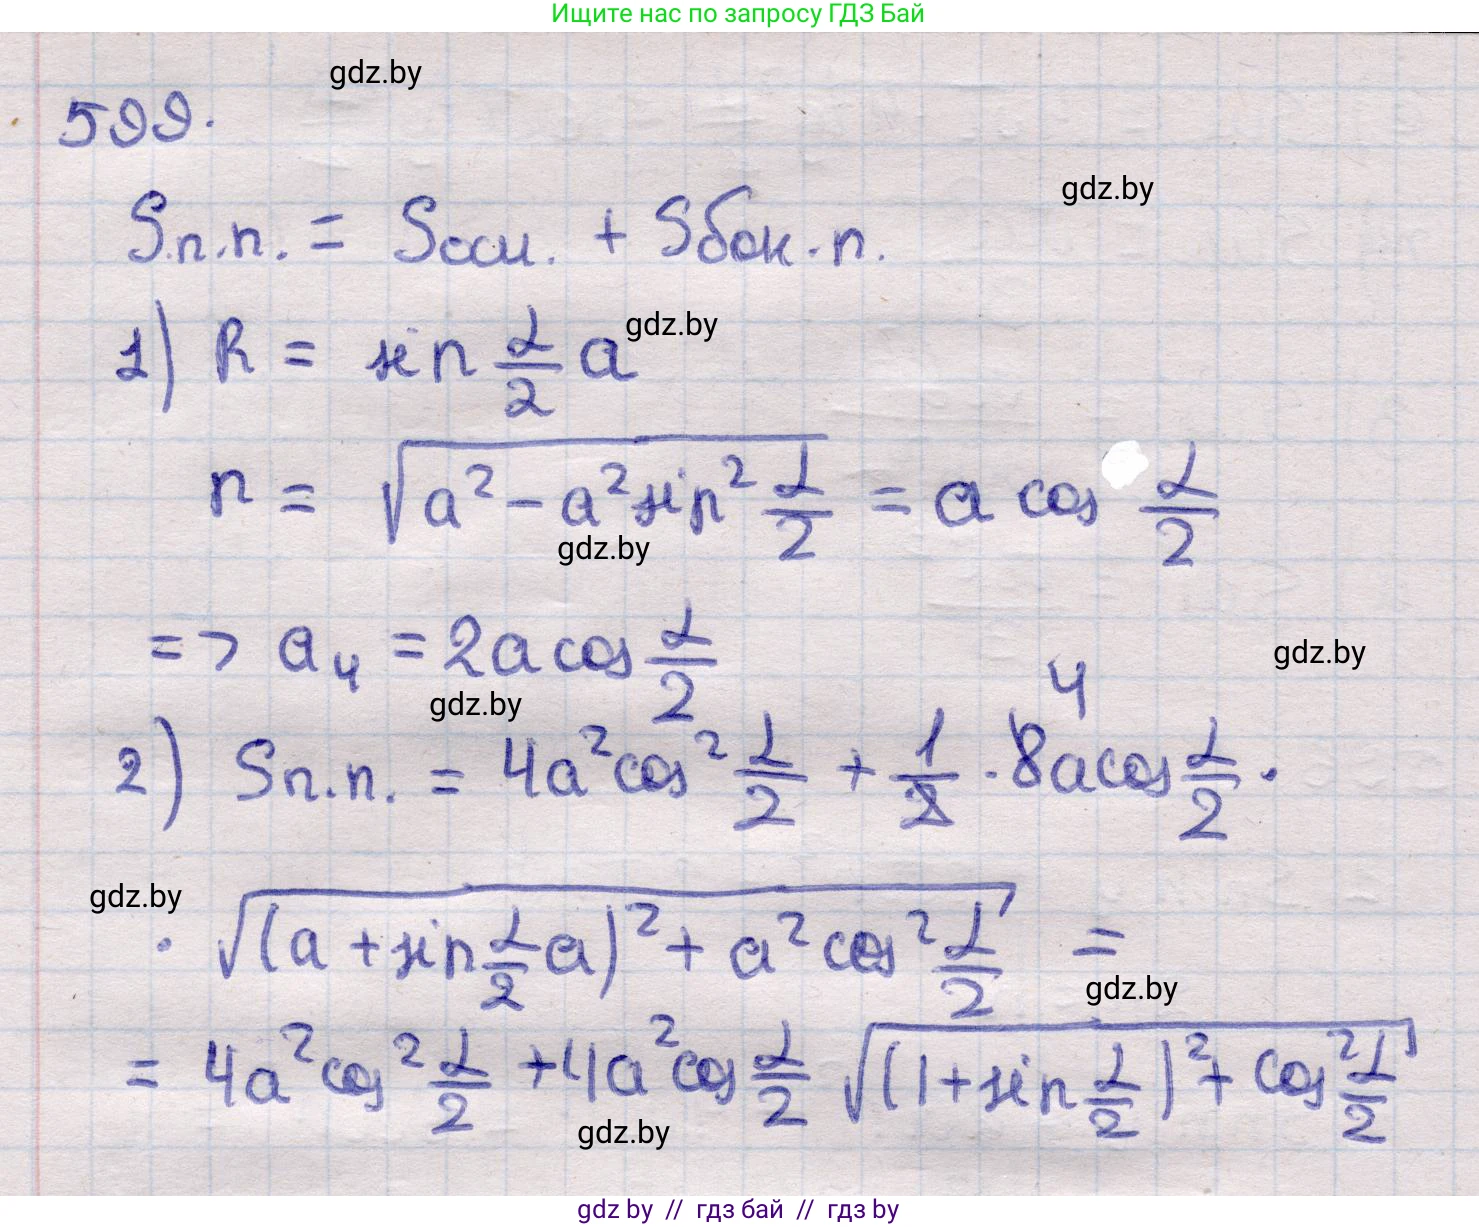 Ищите нас по запросу ГДЗ Бай
gdz.by
599.
gdz.by
Sп.п. = Sосн. + Sбок.п.
1) R = sin α/2 a
gdz.by
n = √(a² - a² sin² α/2) = a cos α/2
gdz.by
=> a₄ = 2a cos α/2
gdz.by
gdz.by
4
2) Sп.п. = 4a² cos² α/2 + 1/2 · 8a cos α/2 ·
gdz.by
· √((a + sin α/2 a)² + a² cos² α/2) =
gdz.by
= 4a² cos² α/2 + 4a² cos α/2 √((1 + sin α/2)² + cos² α/2)
gdz.by
gdz by // гдз бай // гдз by